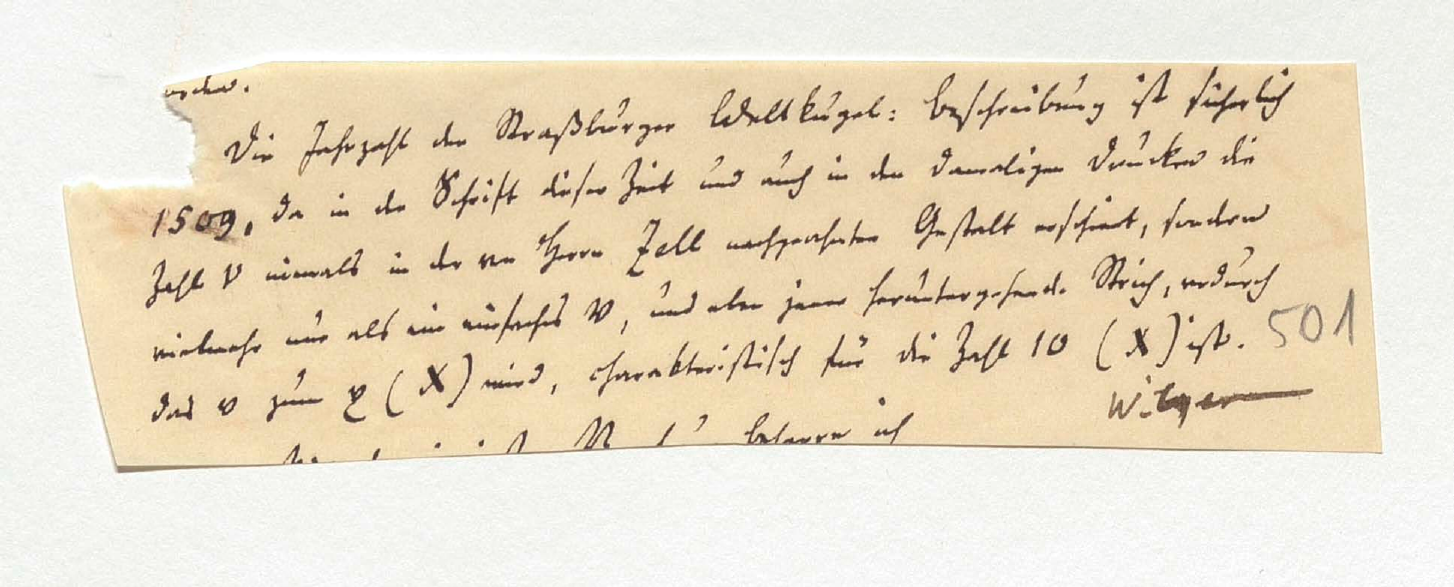 Die Jahrzahl der Straßburger Weltkugel: beschreibung ist sicherlich
1509, da in der Schrift dieser Zeit und auch in den damaligen Drucken die
Zahl V niemals in der von Herrn Zell nachgeahmten Gestalt erscheint, sondern
vielmehr nur als ein einfaches V, und aber jener heruntergehende Strich, wodurch
das v zum x (X) wird, charakteristisch für die Zahl 10 (X) ist. 501
Wilger
beharre ich